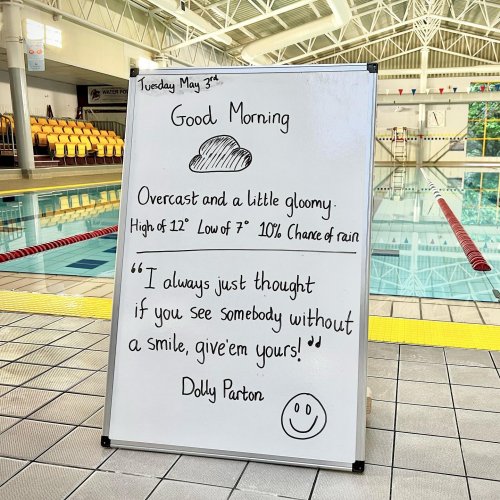 Tuesday May 3rd
Good Morning
Overcast and a little gloomy.
High of 12° Low of 7° 10% Chance of rain
“I always just thought
if you see somebody without
a smile, give'em yours!”
Dolly Parton